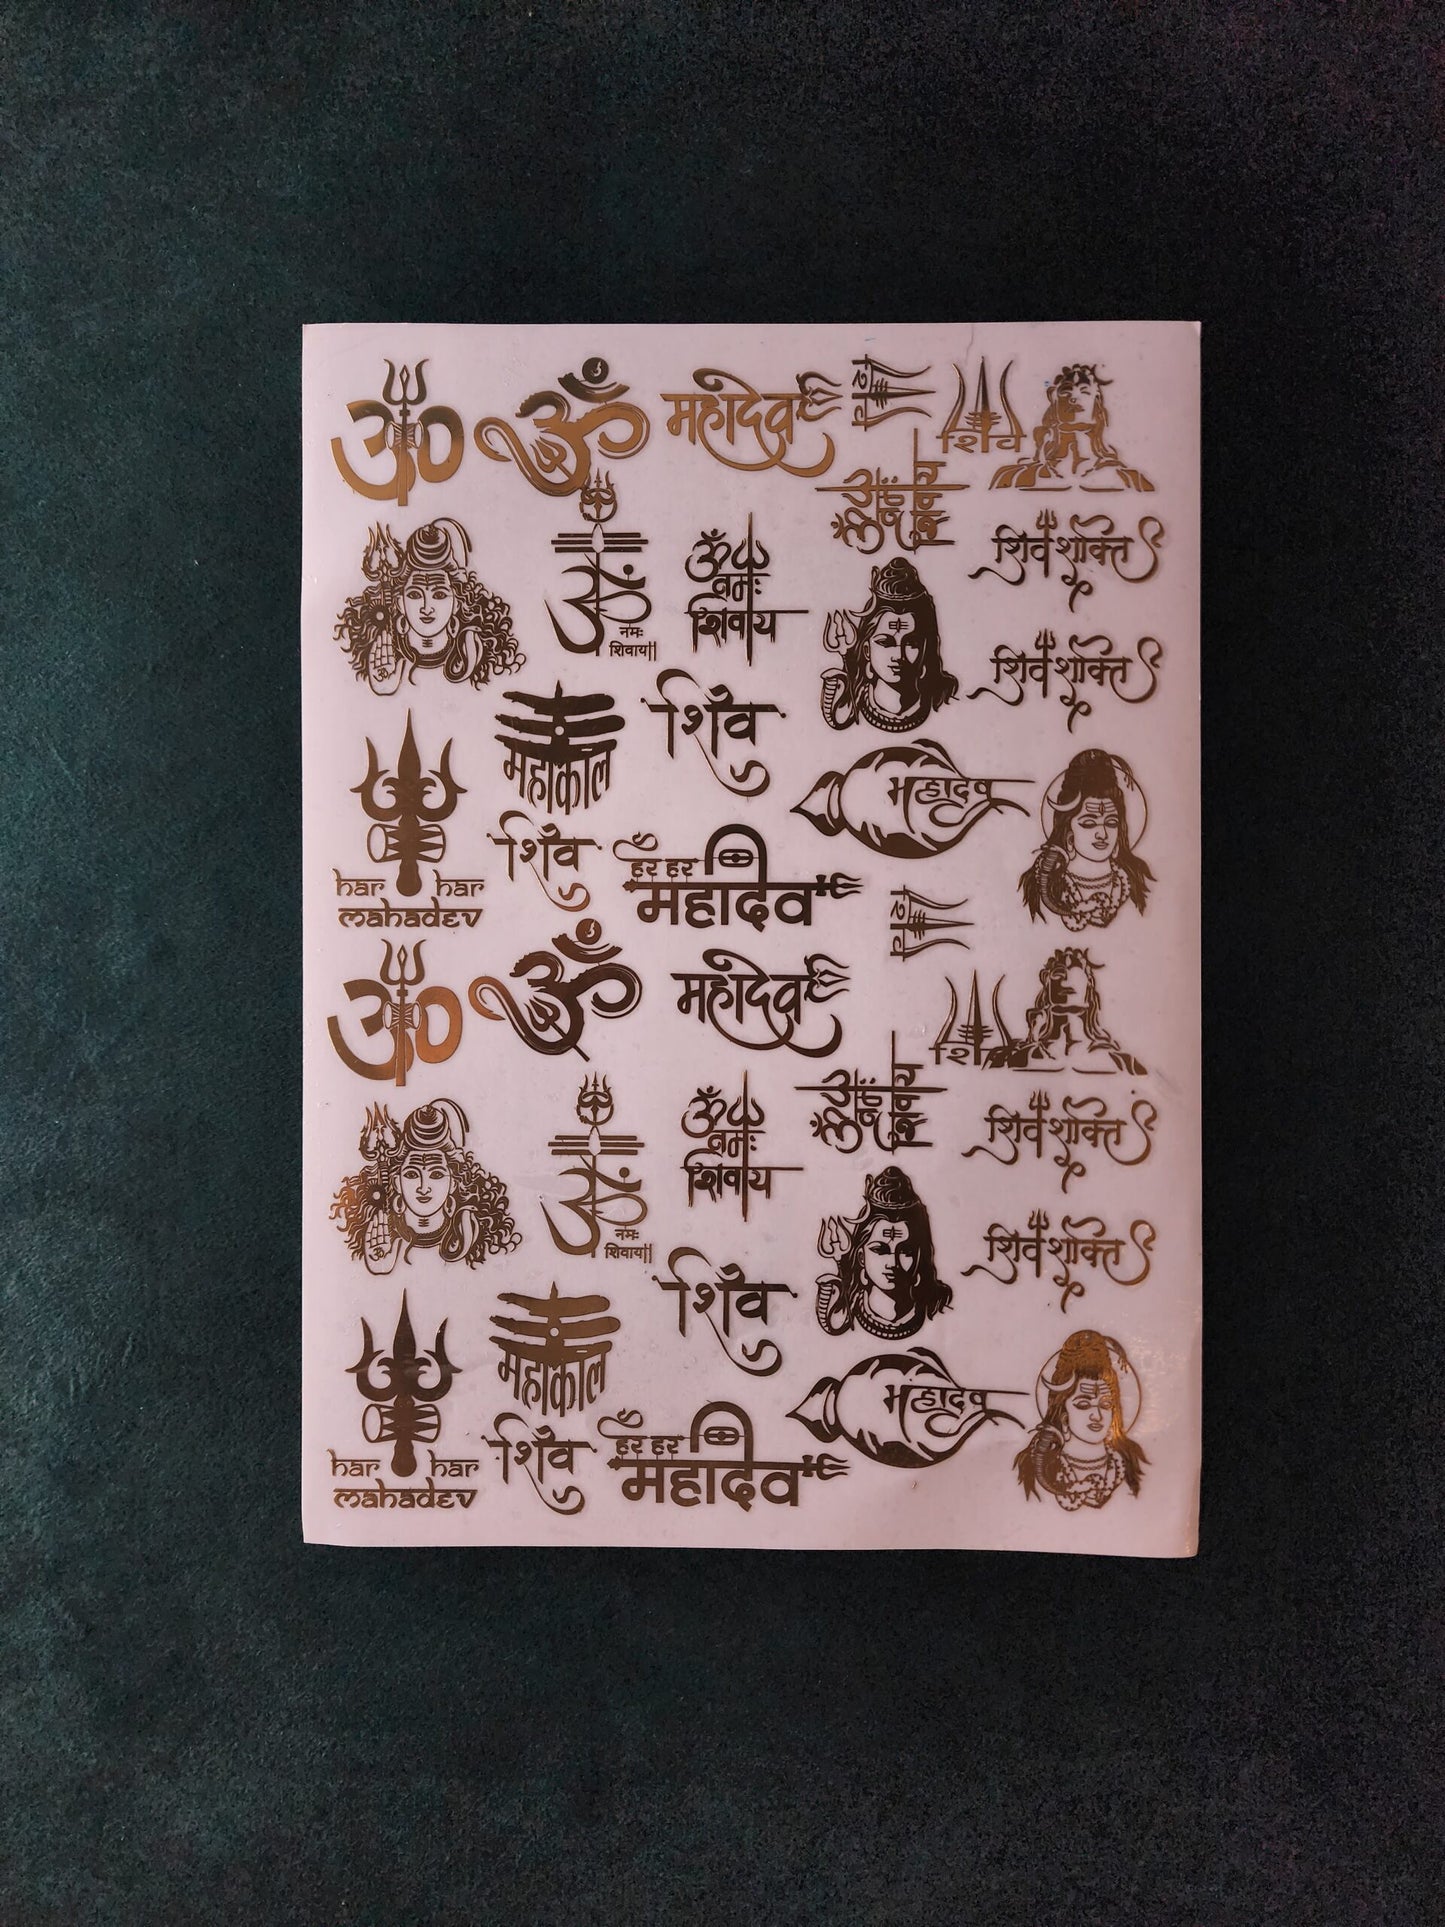 ॐ
ॐ
महादेव
शिव
शिव
ॐ नमः शिवाय
ॐ
नमः
शिवाय||
ॐ
नमः
शिवाय
शिव शक्ति
शिव शक्ति
ॐ
महाकाल
शिव
महादेव
har har
mahadev
शिव
हर हर
महादेव
शिव
ॐ
ॐ
महादेव
शिव
ॐ नमः शिवाय
ॐ
नमः
शिवाय||
ॐ
नमः
शिवाय
शिव शक्ति
शिव शक्ति
ॐ
महाकाल
शिव
महादेव
har har
mahadev
शिव
हर हर
महादेव